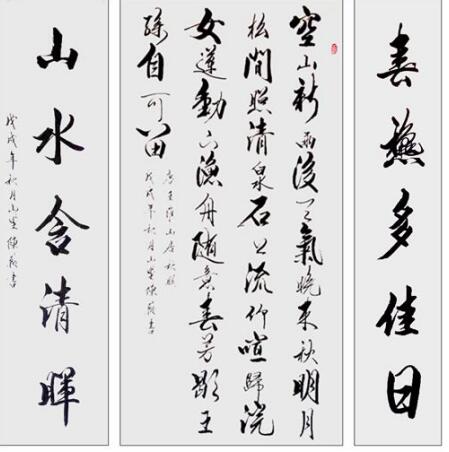 春秋多佳日
空山新雨後天氣晚來秋明月
松間照清泉石上流竹喧歸浣
女蓮動下漁舟隨意春芳歇王
孫自可留
唐王維山居秋暝
戊戌年秋月山陳書
山水含清暉
戊戌年秋月山陳書